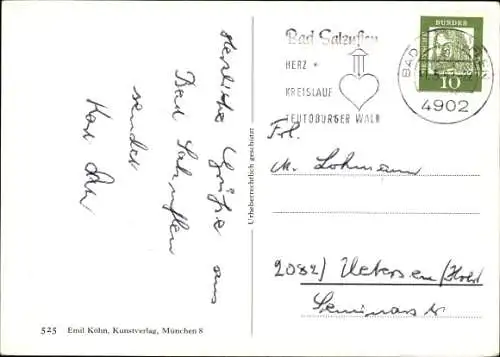 Herzliche Grüße aus
Bad Salzuflen
sendet
525 Emil Köhn, Kunstverlag, München 8
Urheberrechtlich geschützt
Bad Salzuflen
HERZ *
KREISLAUF
TEUTOBURGER WALD
BAD
4902
BUNDES
10
Frl.
M. Lohmann
2082) Uetersen/Holst
Seminarstr